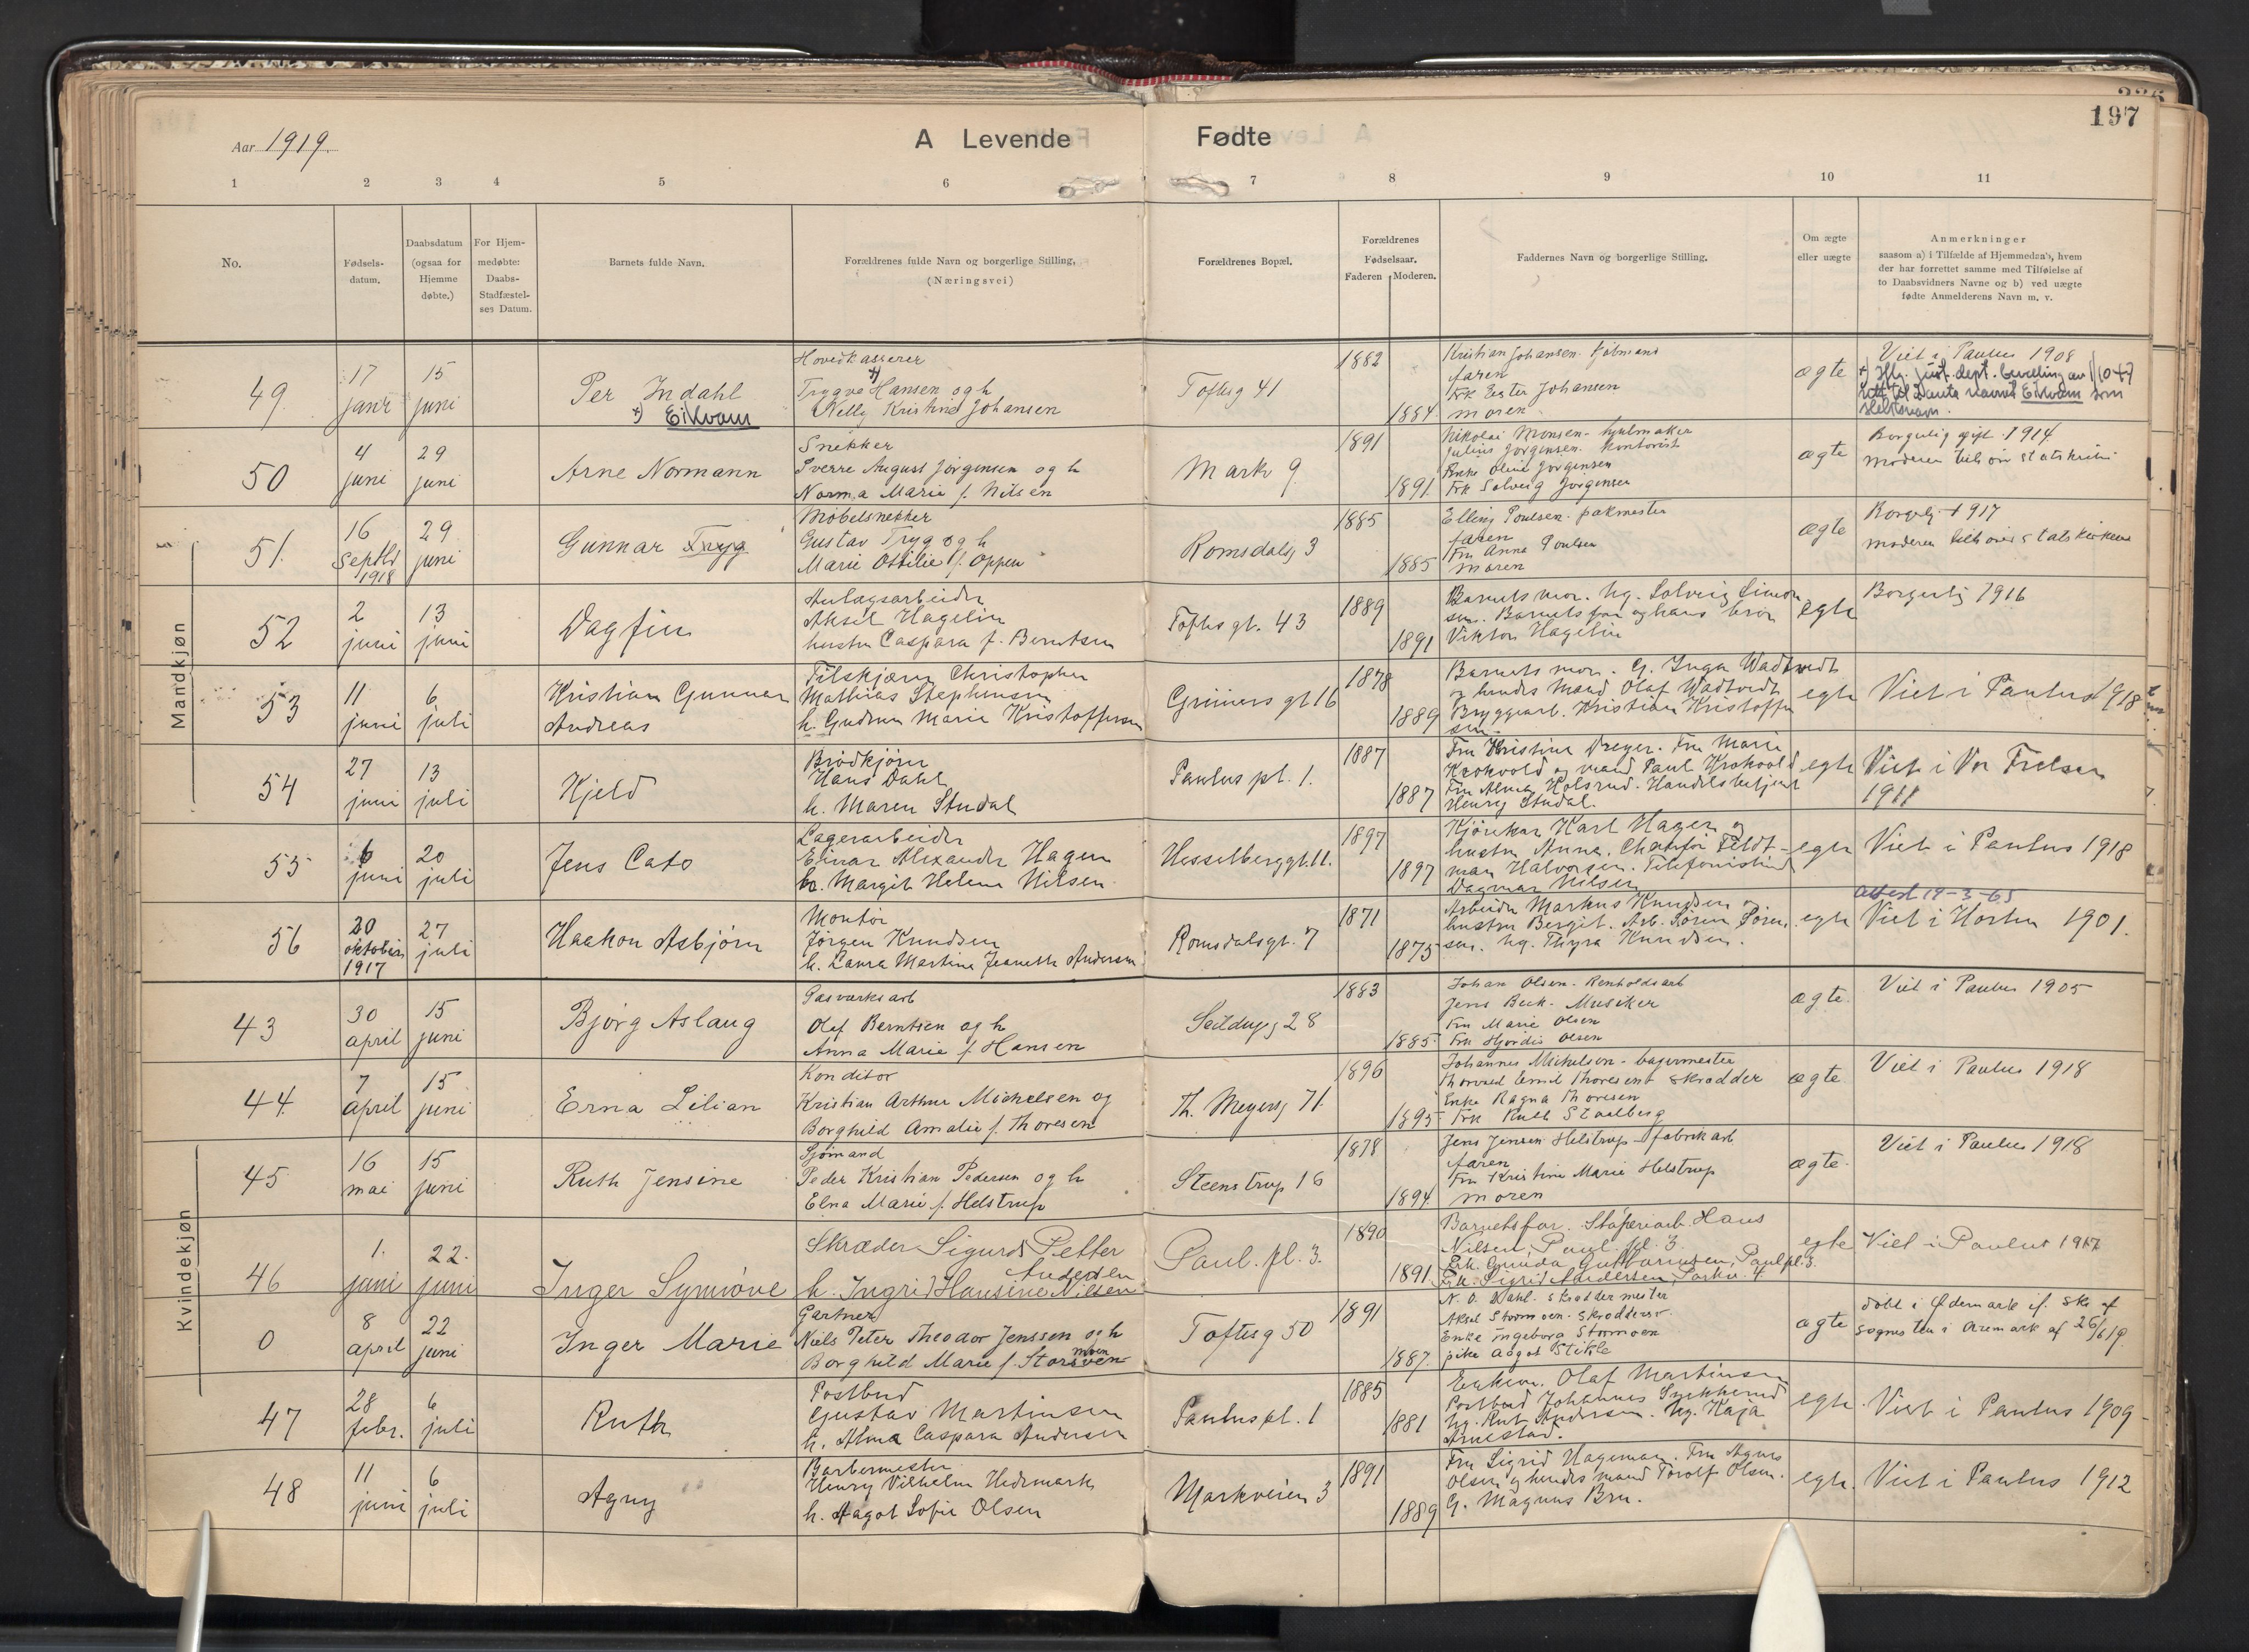 197
Aar 1919.
A Levende Fødte
1 2 3 4 5 6 7 8 9 10 11
No.
Fødsels-
datum.
Daabsdatum
(ogsaa for
Hjemme
døbte.)
For Hjem-
medøbte:
Daabs-
Stadfæstel-
ses Datum.
Barnets fulde Navn.
Forældrenes fulde Navn og borgerlige Stilling,
(Næringsvei)
Forældrenes Bopæl.
Forældrenes
Fødselsaar.
Faderen Moderen.
Faddernes Navn og borgerlige Stilling.
Om ægte
eller uægte
Anmerkninger
saasom a) i Tilfælde af Hjemmedaa's, hvem
der har forrettet samme med Tilføielse af
to Daabsvidners Navne og b) ved uægte
fødte Anmelderens Navn m, v.
Mandkjøn
49
17
janr
15
juni
Per Indahl
+) Eikvam
Hovedkasserer
Trygve +) Hansen og h
Nelly Kristine Johansen
Toftesg 41
1882
1884
Kristian Johansen. Kjøbmand
faren
Frk Ester Johansen
moren
ægte
Viet i Paulus 1908
+) Iflg. just. dept. bevilling av
rett til navnet Eikvam som
slektsnavn.
50
4
juni
29
juni
Arne Normann
Snekker
Sverre August Jørgensen og h
Norma Marie f. Nilsen
Markv 9.
1891
1891.
Nikolai Monsen - hjulmaker
Julius Jørgensen. Kontorist
Enke Oline Jørgensen
Frk Solveig Jørgensen
ægte
Borgerlig gift 1914
moderen tilh
51.
16
Septbr
1918
29
juni
Gunnar Tryg
Møbelsnekker
Gustav Tryg og h
Marie Ottilie f. Oppen
Romsdalsg 3
1885
1885
Elling Poulsen. pakmester
faren
Fru Anna Poulsen
moren
ægte
Borgerlig 1917
moderen tilhører statskirken
52
2
juni
13
juni
Dagfin
Anlægsarbeider
Aksel Hagelin
hustru Caspara f. Berntsen
Toftesgt. 43
1889
1891
Barnets mor. Ug. Solveig Simon
sen. Barnets far og hans bror
Viktor Hagelin
egte
Borgerlig 1916
53
11
juni
6
juli
Kristian Gunnar
Andreas
Filskjærer Christopher
Mathias Stephensen
h. Gudrun Marie Kristoffersen
Grüners gt 16
1878
1889
Barnets mor. G. Inga Wadtvedt
og hendes mand Olaf Wadtvedt
Bryggearb. Kristian Kristoffer
sen.
egte
Viet i Paulus 1918
54
27
juni
13
juli
Kjeld
Brødkjører
Hans Dahl
h. Maren Studal
Paulus pl. 1.
1887
1887
Fru Kristine Dreyer. Fru Marie
Krokvold og mand Paul Krokvold
Fru Alma Holsrud. Handelsbetjent
Henry Studal.
egte
Viet i Vor Frelser
1911
55
6
juni
20
juli
Jens Cato
Lagerarbeider
Einar Alexander Hagen
h. Margit Helene Nilsen
Hesselberggt. 11.
1897
1897
Kjørekar Karl Hagen og
hustru Anna. Chauffør Feldt-
man Halvorsen. Telefonistinde
Dagmar Nilsen
egte
Viet i Paulus 1918
56
20
oktober
1917
27
juli
Haakon Asbjørn
Montør
Jørgen Knudsen
h. Laura Martine Jeanette Andersen
Romsdalsgt. 7
1871
1875
Arbeider Markus Knudsen og
hustru Bergit. Arb. Søren Søren
sen. Ug. Thyra Knudsen.
egte
Attest 19-3-65
Viet i Horten 1901.
Kvindekjøn
43
30
april
15
juni
Bjørg Aslaug
Gasværksarb
Olaf Berntsen og h
Anna Marie f. Hansen
Seildugsg 28
1883
1885
Johan Olsen. Renholdsarb
Jens Beck. Musiker
Fru Marie Olsen
Frk Hjordis Olsen
ægte.
Viet i Paulus 1905
44.
7
april
15
juni
Erna Lilian
Konditor
Kristian Arthur Michelsen og
Borghild Amalie f. Thoresen
Th. Meyersg 71.
1896
1895
Johannes Michelsen - bagermester
Thorvald Emil Thoresen - Skrædder
Enke Ragna Thoresen
Frk Ruth Staalberg
ægte
Viet i Paulus 1918
45
16
mai
15
juni
Ruth Jensine
Sjømand
Peder Kristian Pedersen og h
Elna Marie f. Helstrup
Steenstrup 16
1878
1894
Jens Jensen Helstrup - fabrikarb
faren
Fru Kristine Marie Helstrup
moren
ægte.
Viet i Paulus 1918
46
1.
juni
22.
juni
Inger Synnøve
Skræder Sigurd Petter
Andersen
h. Ingrid Hansine Nilsen
Paul. pl. 3.
1890
1891.
Barnets far. Støperiarb. Hans
Nilsen, Paul. pl. 3.
Frk. Gunda Guttormsen, Paul pl. 3.
Frk. Sigrid Andersen, Parkv. 4
egte
Viet i Paulus 1917
0
8
april
22
juni
Inger Marie
Gartner
Niels Peter Theodor Jenssen og h
Borghild Marie f. Stormoen
Toftesg 50
1891
1887.
N. O. Dahl. skræddermester
Aksel Stormoen. Skræddersv.
Enke Ingeborg Stormoen
pike Aagot Stikle
ægte
døbt i Ødemark if. skr af
sognepr i Aremark af 26/6 19.
47
28
febr.
6
juli
Ruth
Postbud
Gustav Martinsen
h. Alma Caspara Andersen
Paulus pl. 1
1885
1881
Enkem. Olaf Martinsen
Postbud Johannes
Ug. Rut Andersen. Ug. Kaja
Arnestad.
egte.
Viet i Paulus 1909
48
11
juni
6
juli
Agny
Barbermester
Henry Vilhelm Hedemark
h. Aagot Sofie Olsen
Markveien 3
1891
1889
Fru Sigrid Hageman. Fru Agnes
Olsen og hendes mand Torolf Olsen.
G. Magnus Bru.
egte.
Viet i Paulus 1912